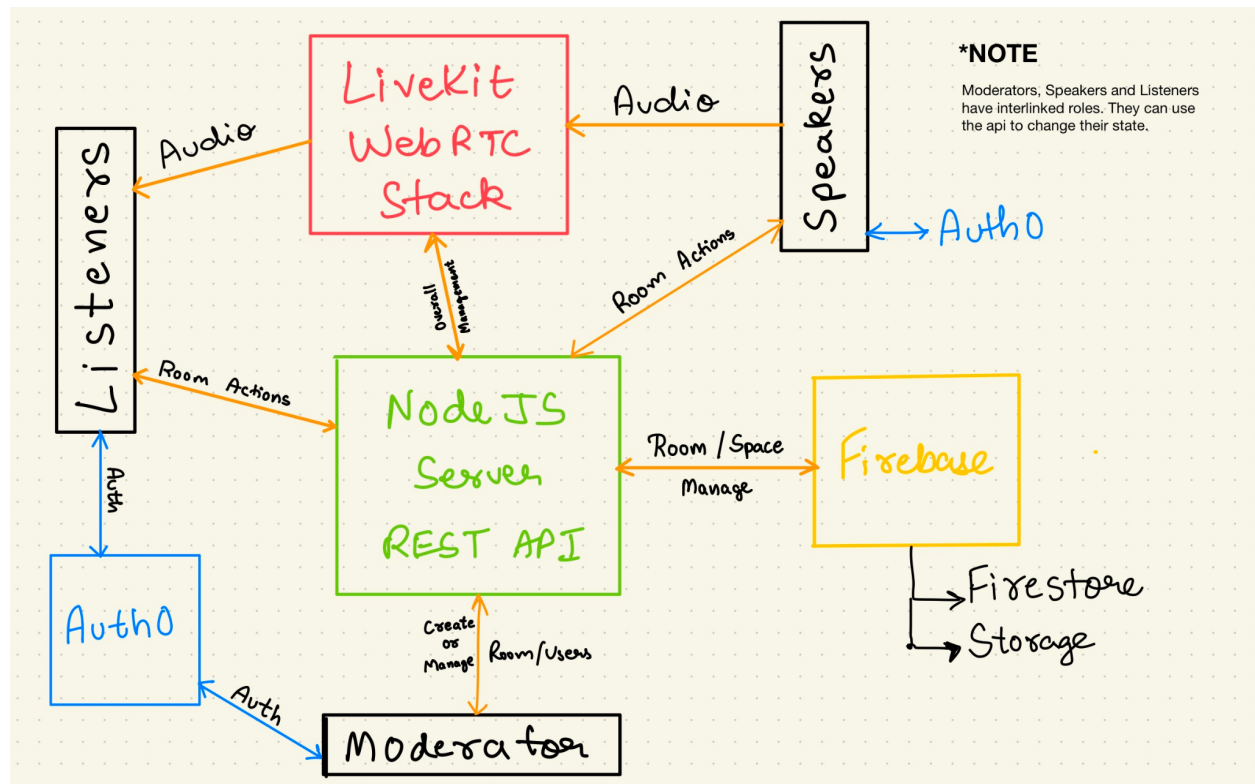 LiveKit
WebRTC
Stack
Audio
Speakers
*NOTE
Moderators, Speakers and Listeners
have interlinked roles. They can use
the api to change their state.
Audio
Listeners
Auth0
Room Actions
Overall
Management
Room Actions
NodeJS
Server
REST API
Room / Space
Manage
Firebase
Firestore
Storage
Auth
Auth0
Create
or
Manage
Room/Users
Auth
Moderator